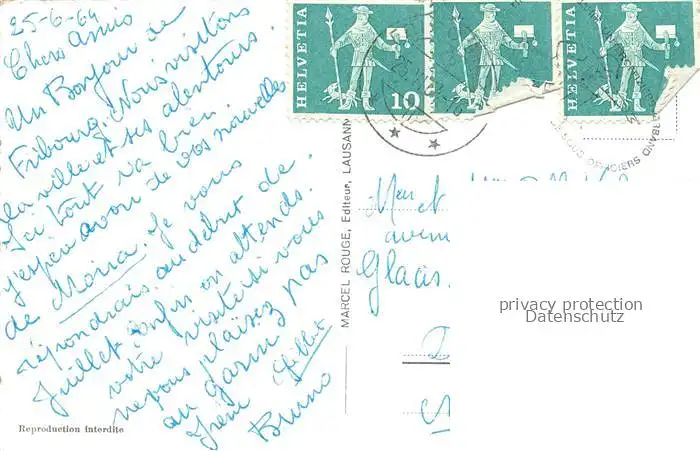 25-6-64
Chers Amis
Un Bonjour de
Fribourg. Nous visitons
la ville et ses alentours.
Ici tout va bien.
J'espère avoir de vos nouvelles
de Moira. Je vous
répondrais au début de
Juillet. Enfin on attends.
votre visite si vous
ne pouls plaisez pas
au
Irène Gillet
Bruno
Reproduction interdite
MARCEL ROUGE, Editeur, LAUSANN
HELVETIA
10
HELVETIA
1
SOUS OFFICIERS
Mr et
Glaas.
privacy protection
Datenschutz